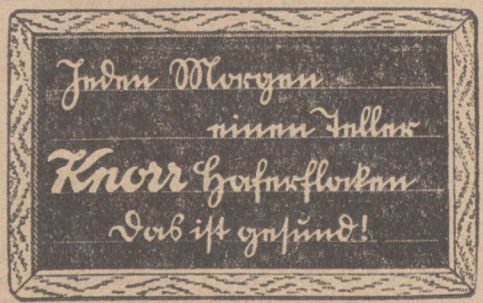 Jeden Morgen
einen Teller
Knorr Haferflocken
Das ist gesund!